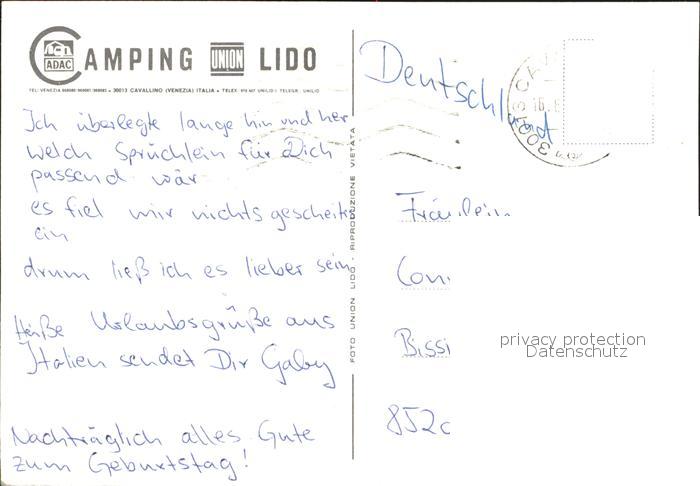 CAMPING UNION LIDO
ADAC
30013 CAVALLINO (VENEZIA) ITALIA
Ich überlegte lange hin und her
welch Sprüchlein für Dich
passend wär
es fiel mir nichts gescheites
ein
drum ließ ich es lieber sein
Heiße Urlaubsgrüße aus
Italien sendet Dir Gaby
Nachträglich alles Gute
zum Geburtstag!
FOTO UNION LIDO - RIPRODUZIONE VIETATA
Deutschland
30013 CAV
Fräulein
Con
Bissi
privacy protection
Datenschutz
852